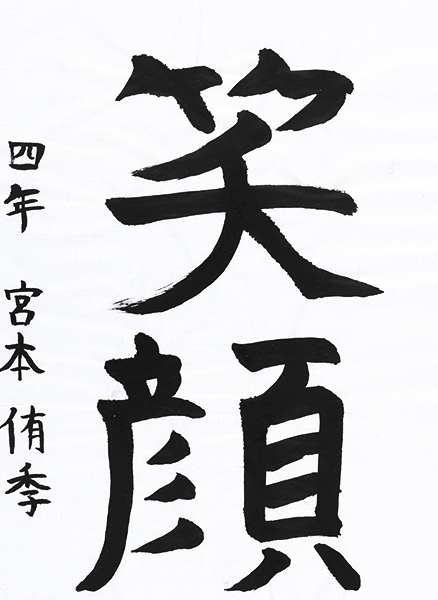 笑顔
四年 宮本侑季